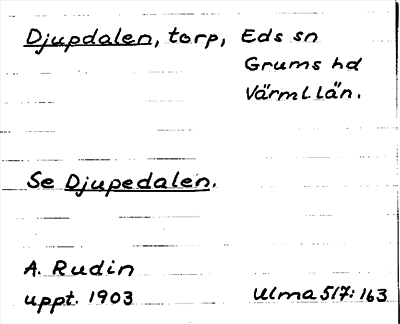 Djupdalen, torp, Eds sn
Grums hd
Värml län.
Se Djupedalen.
A. Rudin
uppt. 1903 Ulma 517: 163